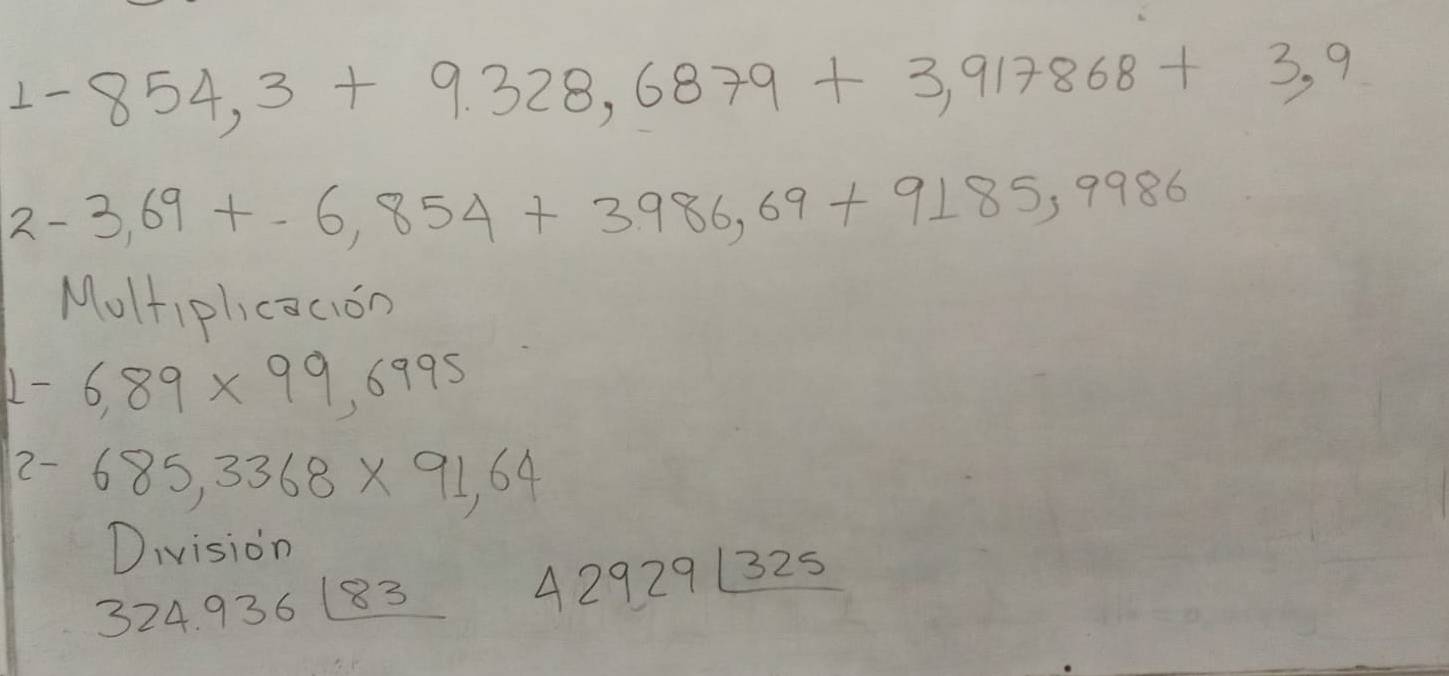 1- 854,3 + 9.328,6879 + 3,917868 + 3,9
2- 3,69 + - 6,854 + 3.986,69 + 9185,9986
Multiplicación
1- 6,89 x 99,6995
2- 685,3368 x 91,64
División
324.936 |83 42929 |325